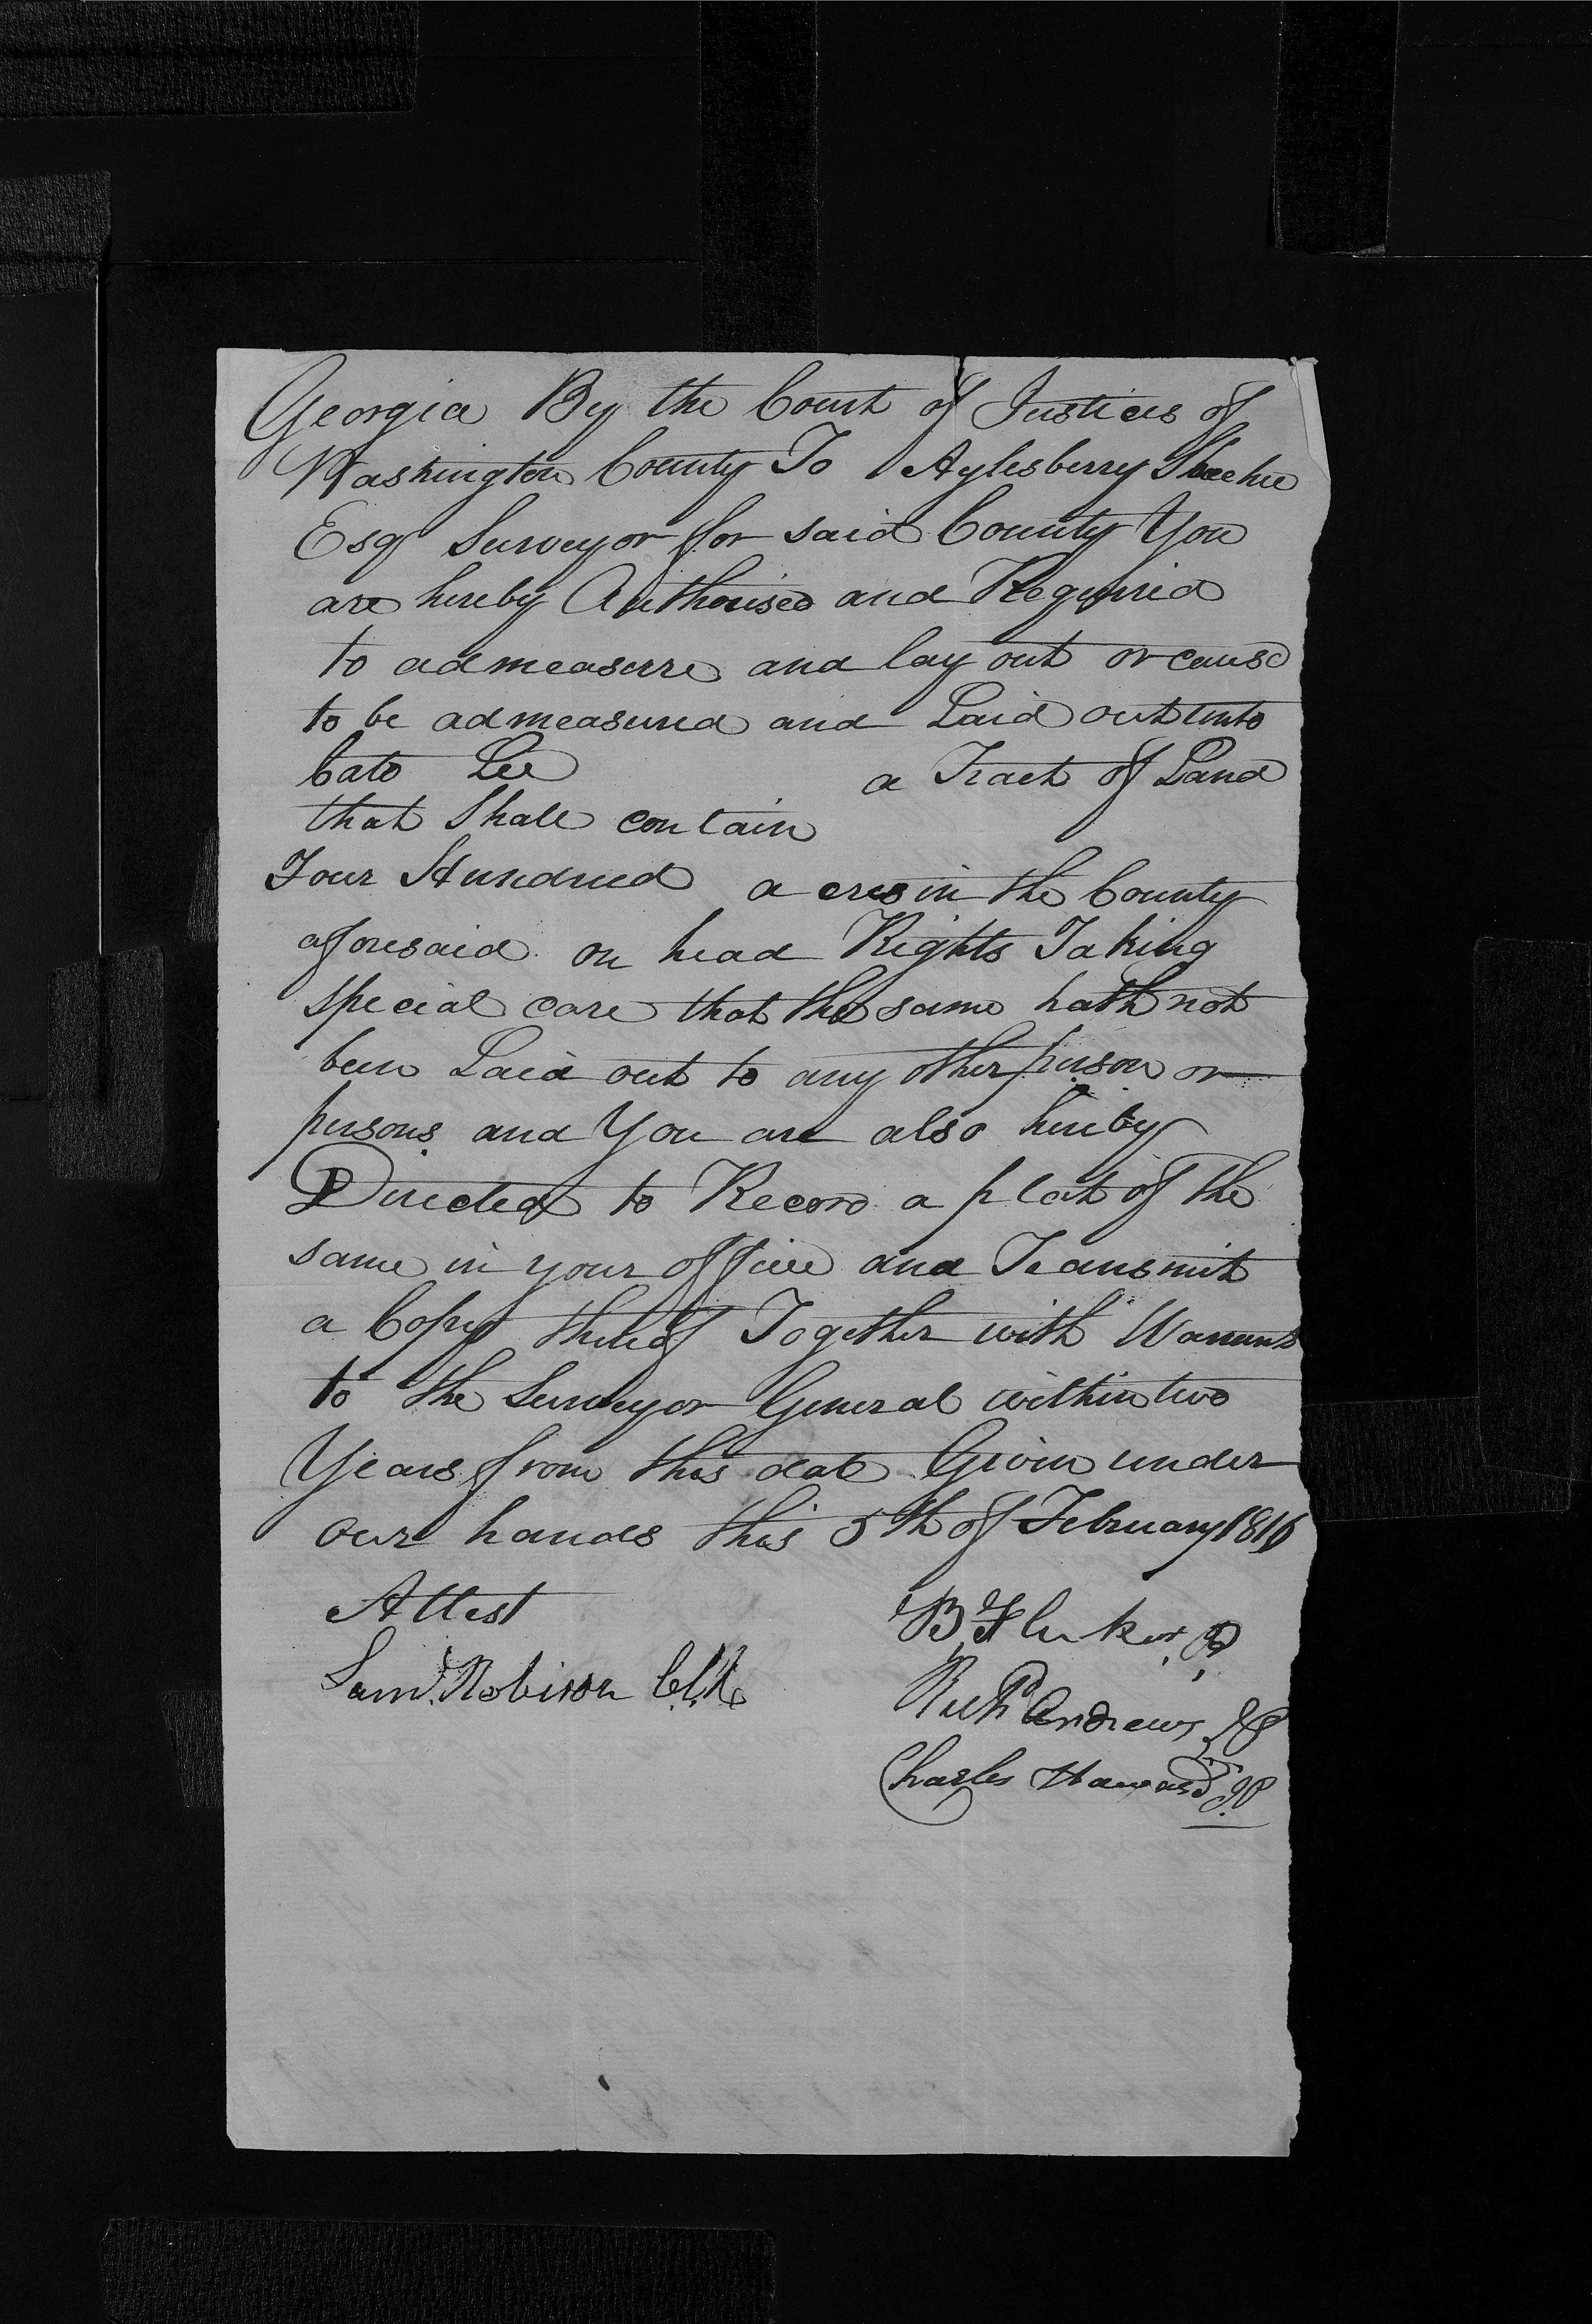 Georgia By the Court of Justices of
Washington County To Aylesberry
Esqr Surveyor for said County You
are hereby Authorised and Required
to admeasure and lay out or cause
to be admeasured and Laid out unto
Cato Lee a Tract of Land
that Shall contain
Four Hundred acres in the County
aforesaid on head Rights Taking
special care that the same hath not
been Laid out to any other person or
persons and You are also hereby
Directed to Record a plat of the
same in your office and Transmit
a Copy thereof Together with Warrant
to the Surveyor General within two
Years from this date Given under
our hands this 5th of February 1816
Attest
B Fluker JP
Saml. Robison Clk
Andrews JP
Charles JP